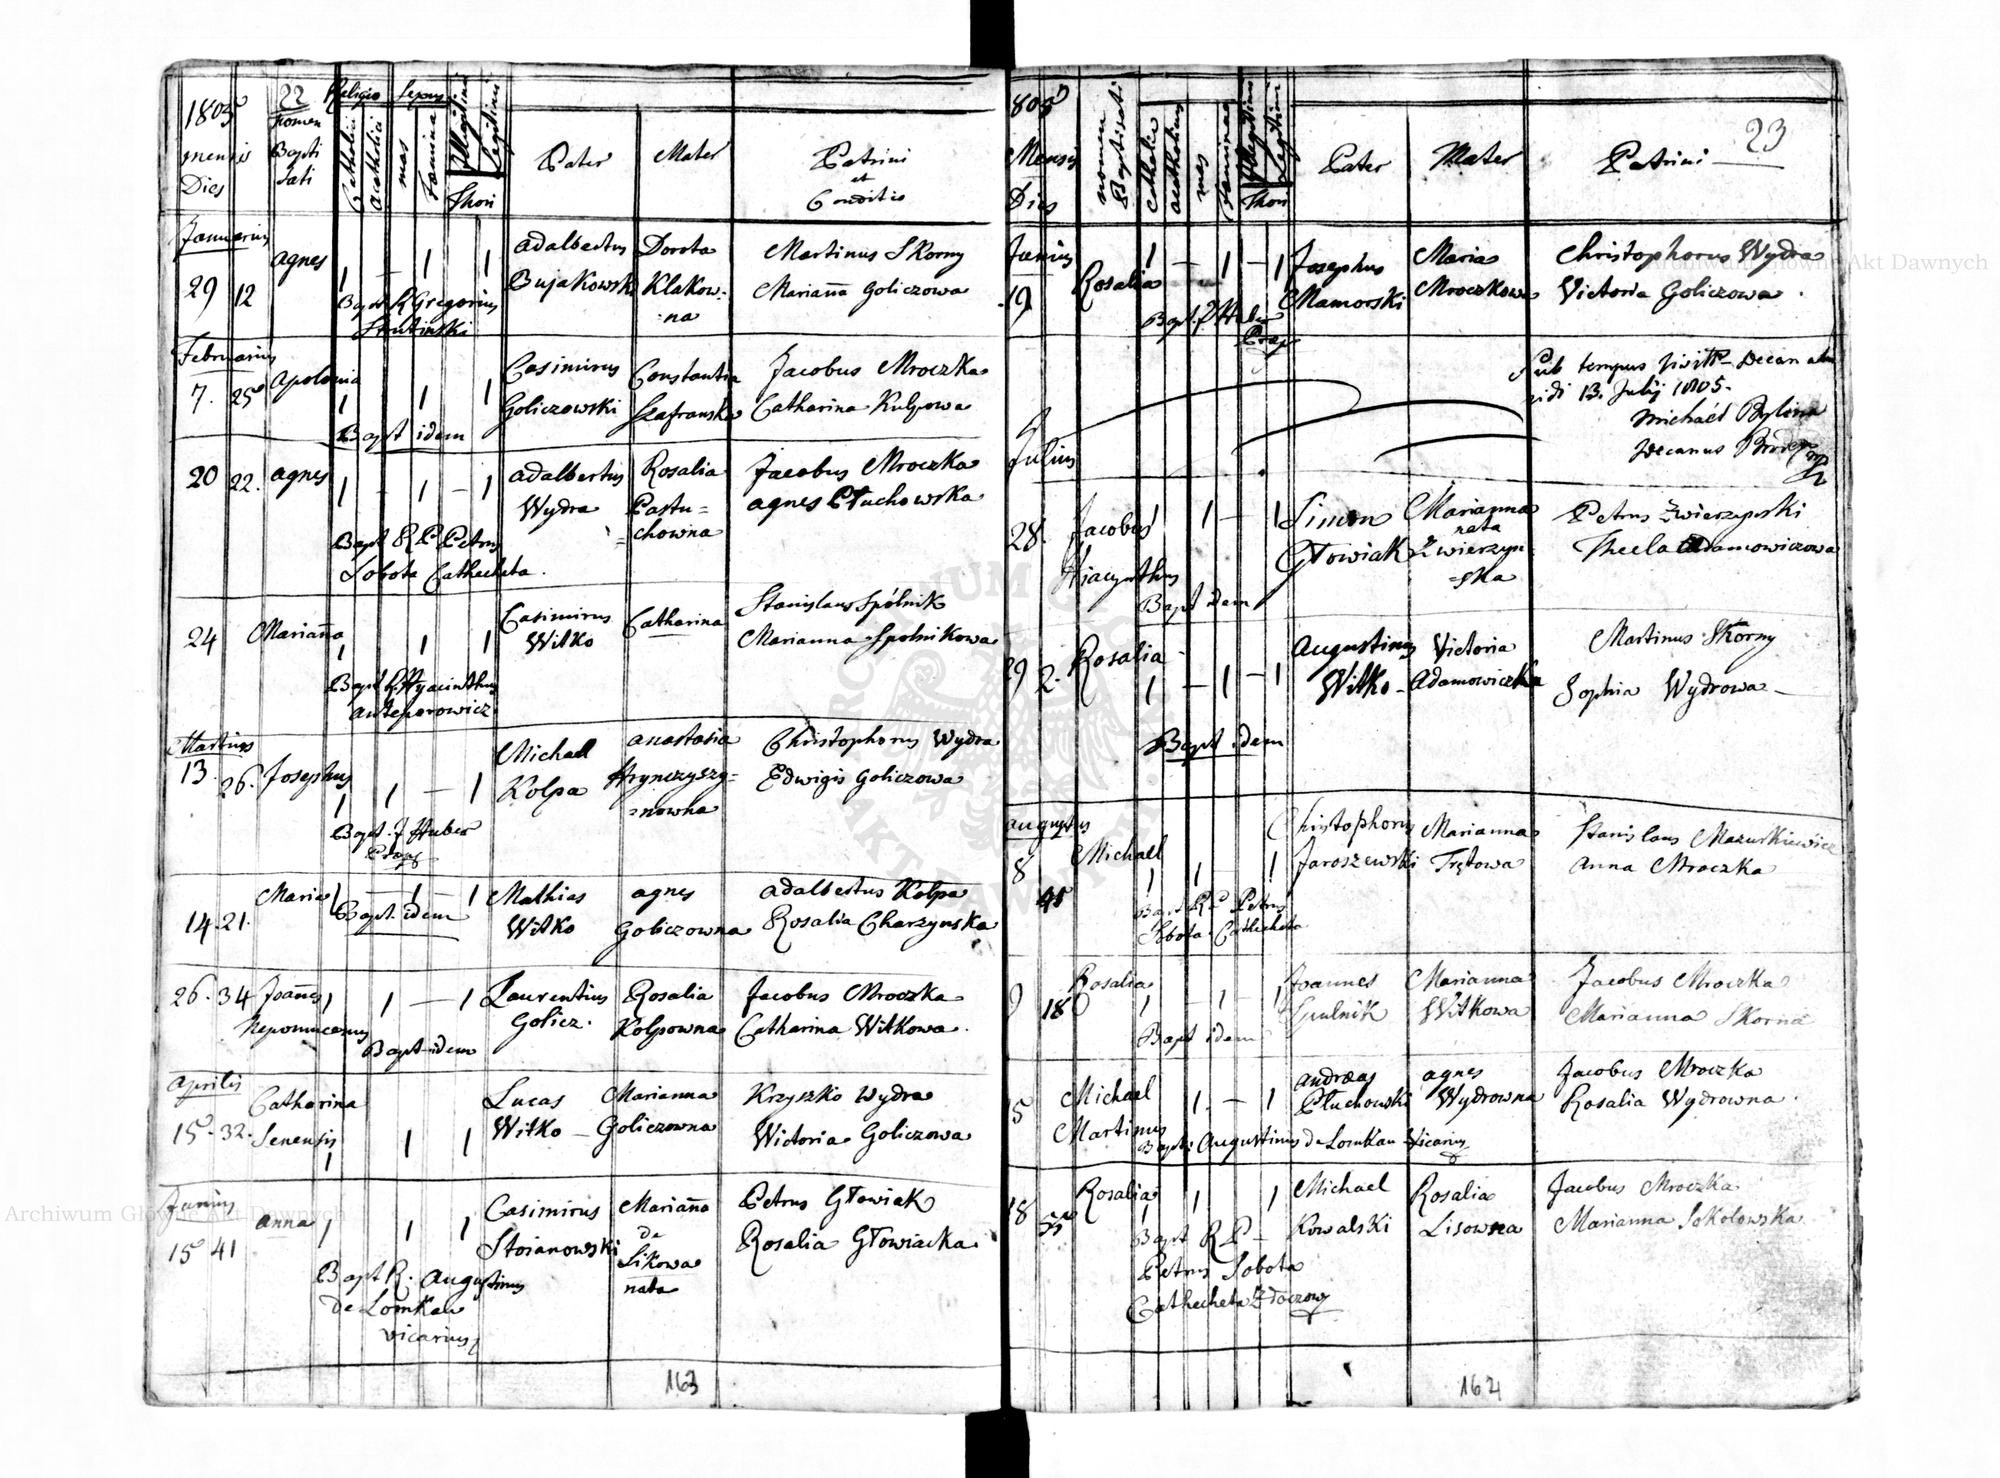 1805
mensis
Dies
22
Nomen
Bapti
sati
Religio
Catholici
Acatholici
Sexus
mas
Foemina
Illegitimi
Legitimi
Thori
Pater
Mater
Patrini
et
Conditio
Januarius
29 12
Agnes
1 — 1 1
Bapt R Gregorius
Strutinski
Adalbertus
Bujakowski
Dorota
Klakow-
na
Martinus Skorny
Marianna Goliczowa
Februarius
7. 25
Apolonia
1 1 1
Bapt idem
Casimirus
Goliczowski
Constantia
Szafranska
Jacobus Mroczka
Catharina Kulpowa
20 22.
Agnes
1 - 1 - 1
Bapt R P Petrus
Sobota Cathecheta.
Adalbertus
Wydra
Rosalia
Pastu=
chowna
Jacobus Mroczka
Agnes Pluchowska
24
Marianna
1 1 1
Bapt R. Hyacinthus
Antepowowicz
Casimirus
Witko
Catharina
Stanislaus Spólnik
Marianna Spolnikowa
Martius
13. 26.
Josephus
1 1 — 1
Bapt. J Huber
Praep
Michael
Kolpa
Anastasia
Hrynczyszy=
=nowna
Christophorus Wydra
Edwigis Goliczowa
14. 21.
Maria
1 — 1 — 1
Bapt. idem
Mathias
Witko
Agnes
Goliczowna
Adalbertus Kolpa
Rosalia Charzynska
26. 34
Joannes
Nepomucenus
1 1 — 1
Bapt idem
Laurentius
Golicz.
Rosalia
Kolpowna
Jacobus Mroczka
Catharina Witkowa.
Aprilis
15. 32.
Catharina
Senensis
1 1 1
Lucas
Witko
Marianna
Goliczowna
Krzyszko Wydra
Wictoria Goliczowa
Junius
15 41
Anna
1 1 1
Bapt R. Augustinus
de Lomkau
vicarius
Casimirus
Stoianowski
Marianna
de
Likowa
nata
Petrus Głowiak
Rosalia Głowiacka
163
1805
Mensis
Dies
nomen
Baptisati
Catholici
acatholicus
mas
foeminae
Illegitimi
Legitimi
Thori
Pater
Mater
Patrini
23
Junius
19
Rosalia
1 — 1 — 1
Bapt. J Huber
Praep
Josephus
Mamorski
Maria
Mroczkowa
Christophorus Wydra
Victoria Goliczowa.
Sub tempus Visitt- Decanalis
vidi 13. Julij 1805.
Michael Bylina
Decanus
Julius
28.
Jacobus
Hiacynthus
1 1 — 1
Bapt idem
Simon
Głowiak
Marianna
nata
Zwierzyn
=ska
Petrus Zwierzynski
Thecla Adamowiczowa
29 2.
Rosalia
1 — 1 — 1
Bapt idem
Augustinus
Witko
Victoria
Adamowiczka
Martinus Skorny
Sophia Wydrowa
Augustus
8
Michael
1 1 1
Bapt R P Petrus
Sobota Cathecheta
Christophorus
Jaroszewski
Marianna
Trętowa
Stanislaus Mazurkiewicz
Anna Mroczka
9 18
Rosalia
1 - 1 - 1
Bapt idem
Joannes
Spulnik
Marianna
Witkowa
Jacobus Mroczka
Marianna Skorna
15
Michael
Martinus
1 — 1
Bapt: Augustinus de Lomkau Vicarius
Andreas
Płuchowski
Agnes
Wydrowna
Jacobus Mroczka
Rosalia Wydrowna.
18 35
Rosalia
1 1 1
Bapt R P
Petrus Sobota
Cathecheta Złoczow
Michael
Kowalski
Rosalia
Lisowna
Jacobus Mroczka
Marianna Sokolowska
164
Archiwum Główne Akt Dawnych
Archiwum Główne Akt Dawnych
ARCHIWUM GŁÓWNE AKT DAWNYCH